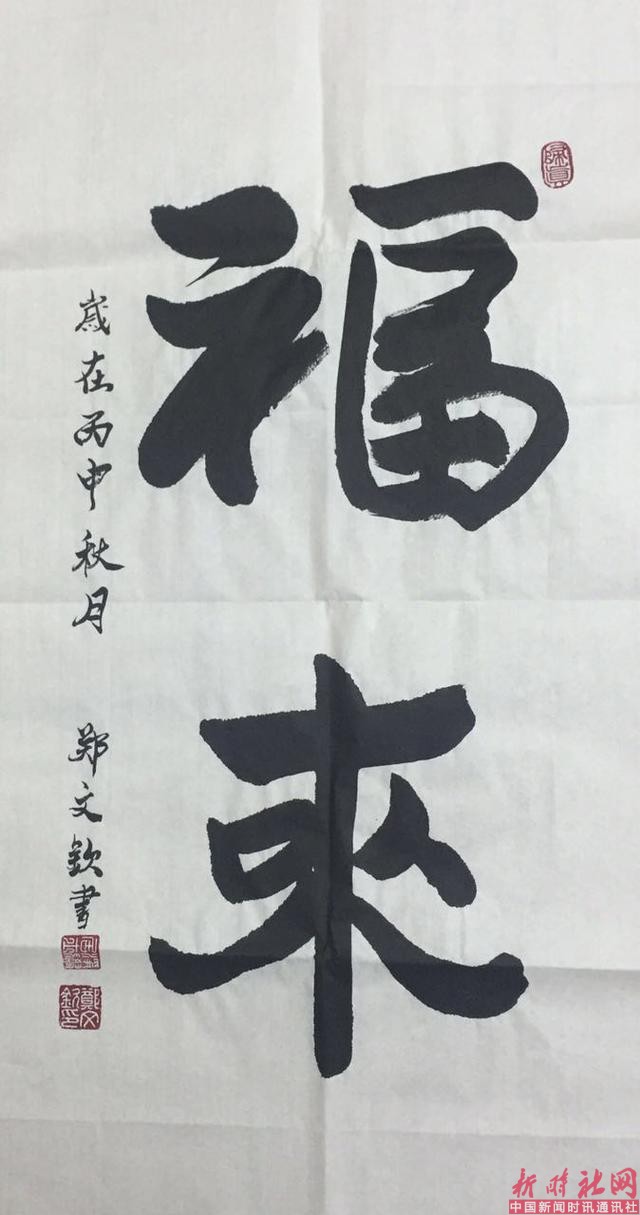 福來
歲在丙申秋月 郑文欽書
鄭文欽印
新时社网
中国新闻时讯通讯社